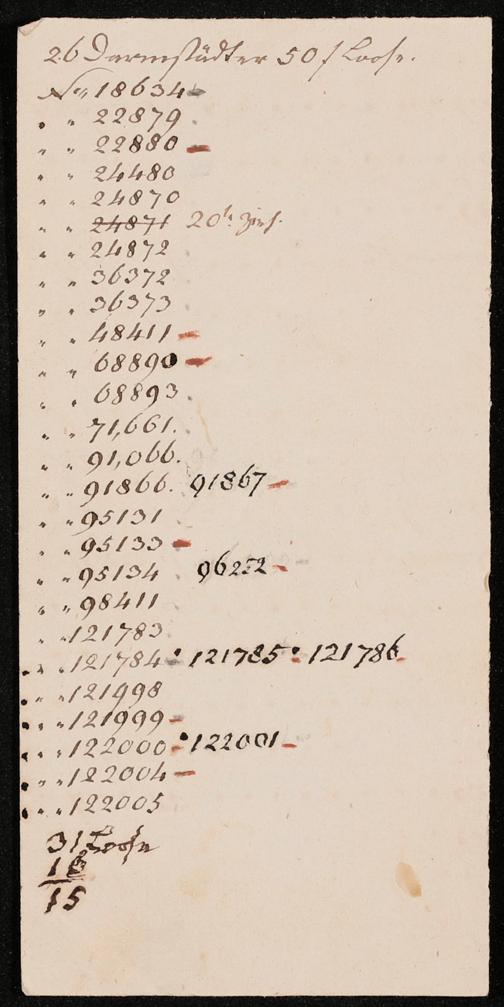 26 Darmstädter 50 f Loose.
No 18634
" " 22879
" " 22880
" " 24480
" " 24870
" " 24871 20
" " 24872
" " 36372
" " 36373
" " 48411
" " 68890
" " 68893
" " 71,661.
" " 91,066.
" " 91866. 91867
" " 95131
" " 95133
" " 95134 96272
" " 98411
" " 121783
" " 121784 121785 121786
" " 121998
" " 121999
" " 122000 122001
" " 122004
" " 122005
31 Loose
16
15